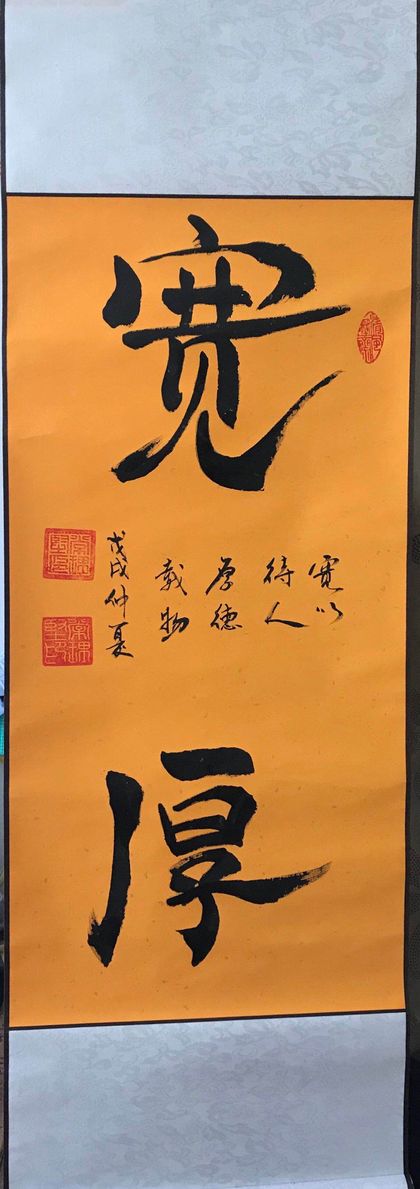 宽
寬以
待人
厚德
載物
戊戌仲夏
厚